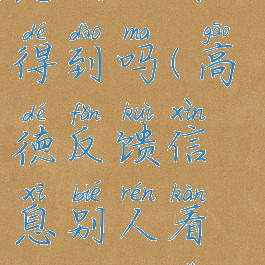 dé dào ma gāo
得到吗(高
dé fǎn kuì xìn
德反馈信
xī bié rén kàn
息别人看